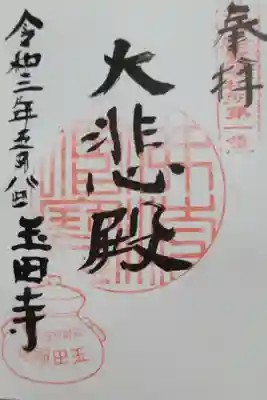 奉拝
大悲殿
令和三年五月八日
玉田寺